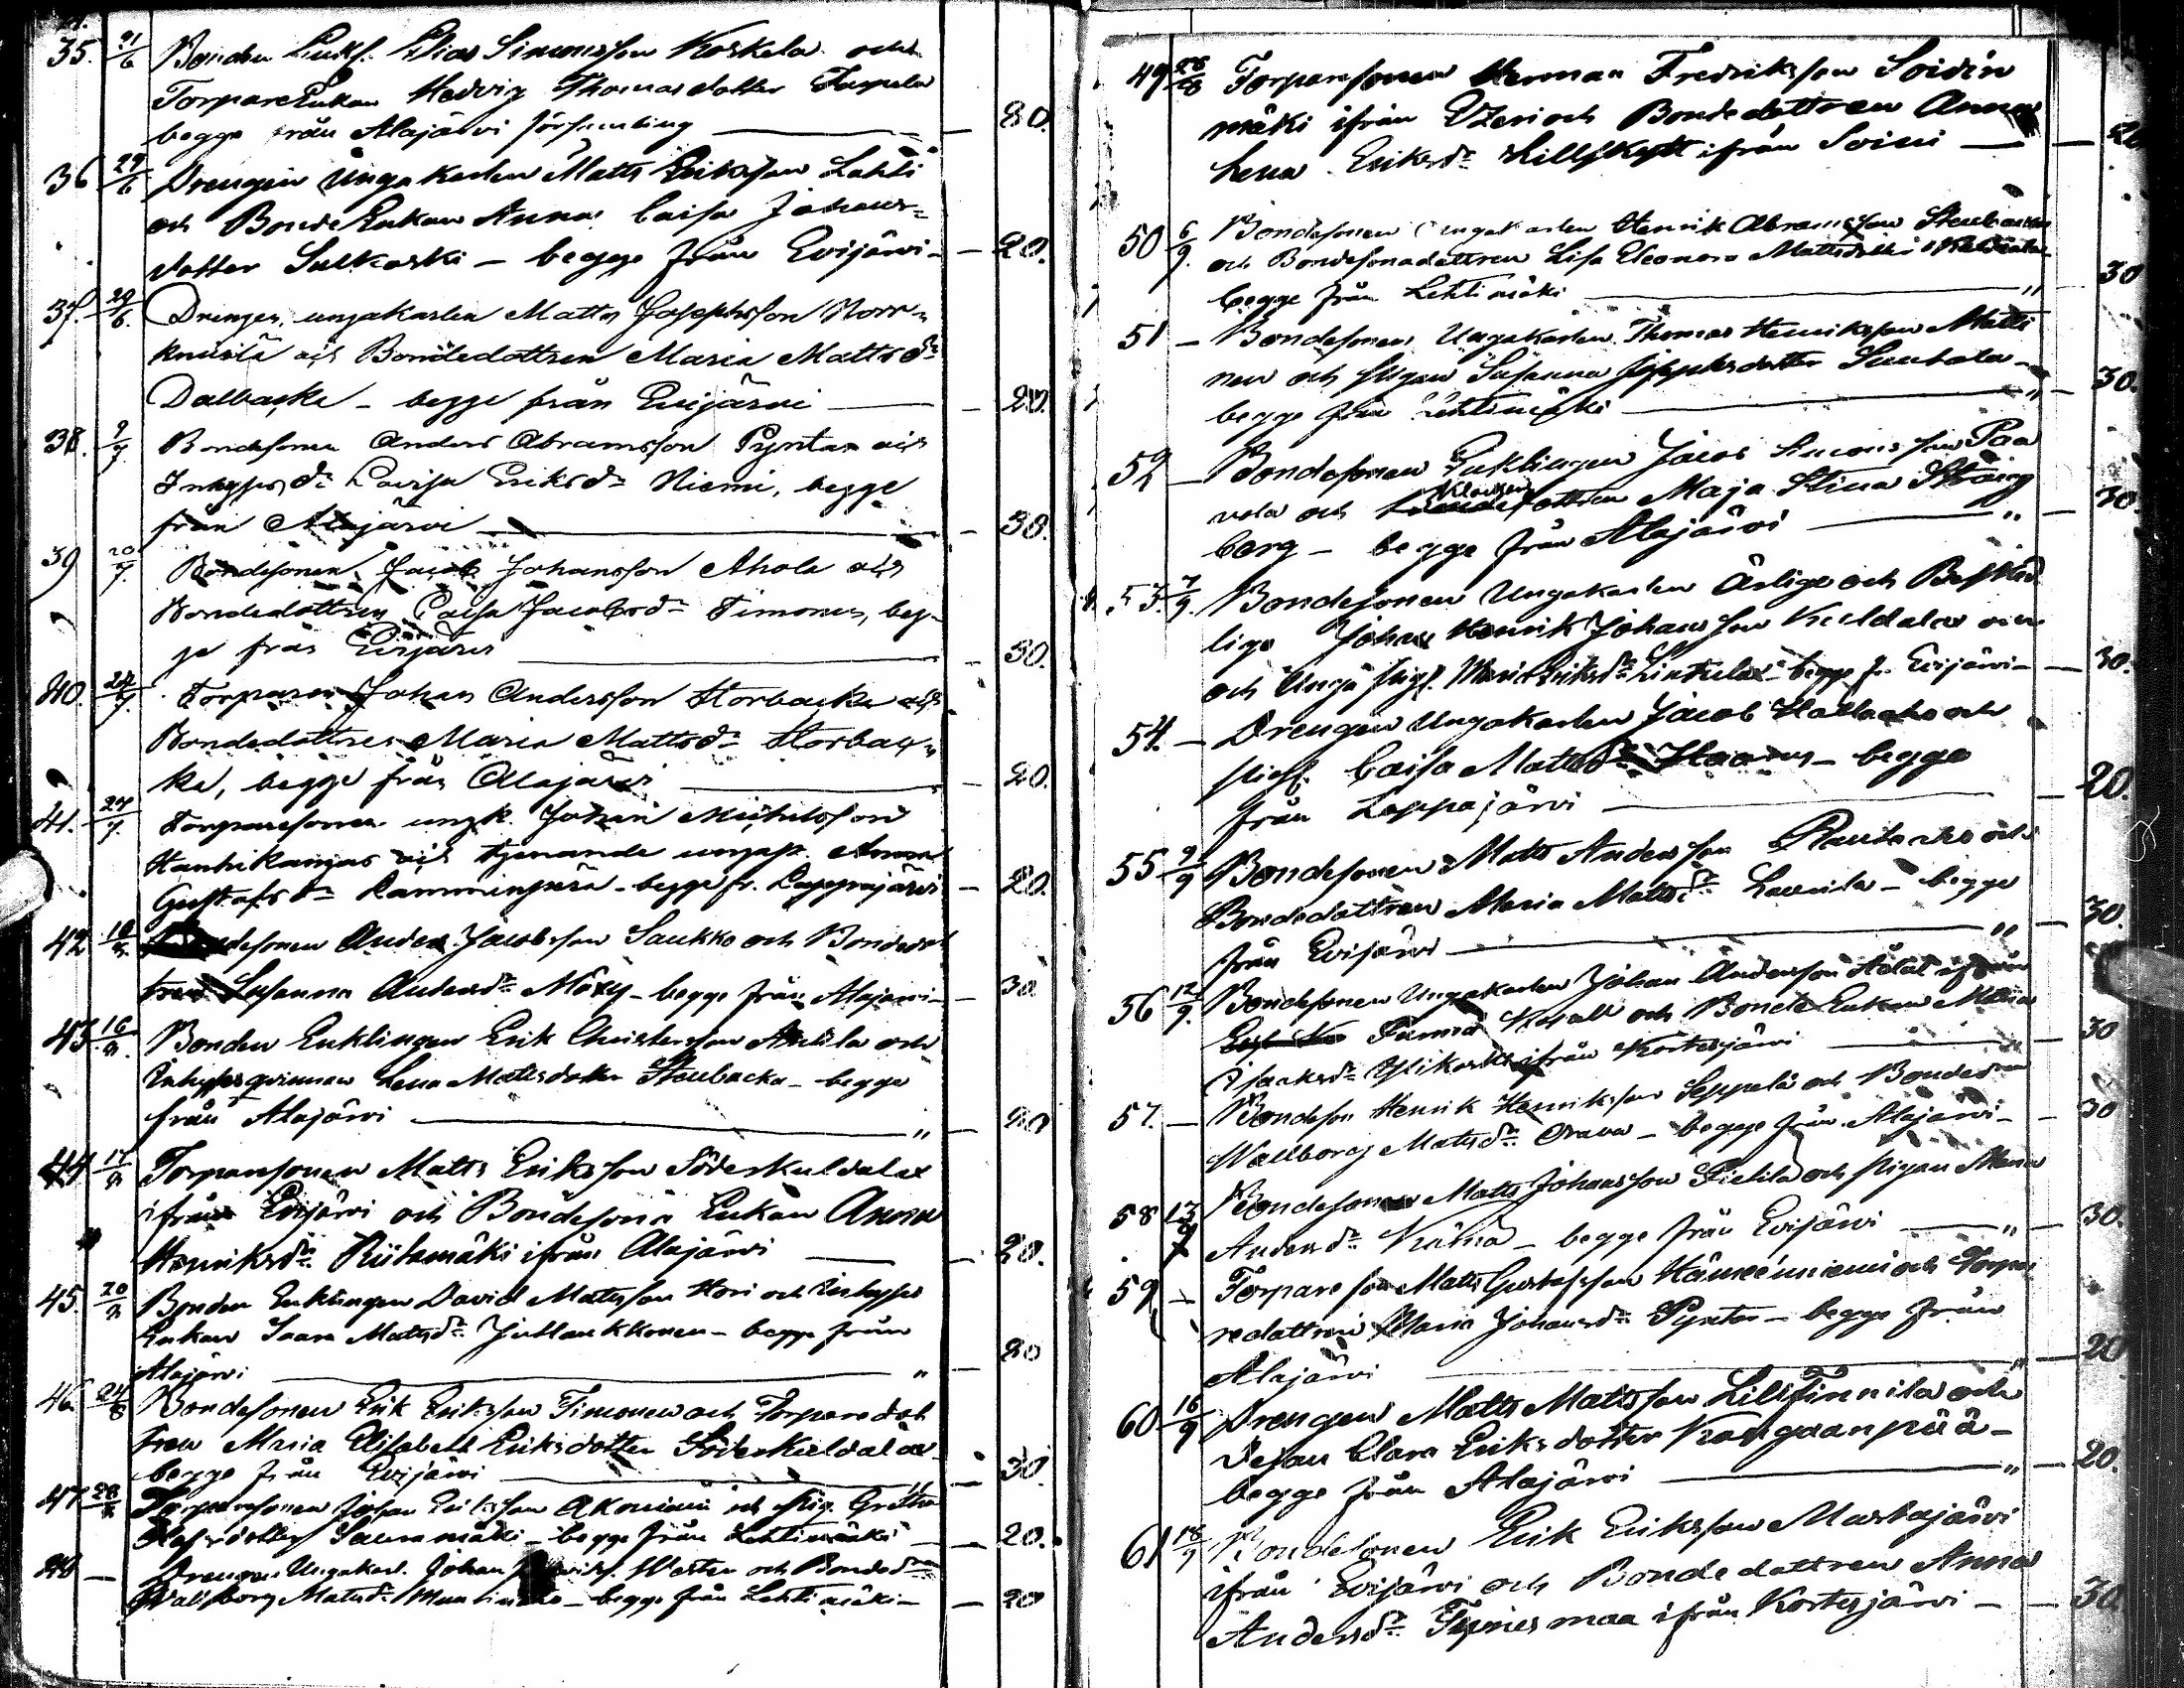 35. 21/6 Bonden Enkl. Elias Simonsson Koskela och
TorpareEnkan Hedvig Thomasdotter
begge från Alajärvi församling — 20.
36 29/6 Drengen Ungakarlen Matts Eriksson Lahti
och BondeEnkan Anna Caisa Johans-
dotter Sulkoski - begge från Evijärvi - 20.
37. 29/6. Drengen, ungakarlen Matts Josephsson Norr-
knivilä och Bondedottren Maria Mattsdr
Dalbacka - begge från Evijärvi — 20.
38. 9/7 Bondesonen Anders Abramsson Pyntar och
Inhysesdr Lovisa Eriksdr Niemi, begge
från Alajärvi — 30.
39 20/7. Bondesonen Jacob Johansson Ahola och
Bondedottren Caisa Jacobsdr Timonen, beg-
ge från Evijärvi — 30.
40. 24/7. Torparen Johan Andersson Storbacka och
Bondedottren Maria Mattsdr Storbac-
ka, begge från Alajärvi — 20.
41. 27/7. Torparesonen ungk. Johan Michelsson
Hanhikangas och tjenande ungap. Anna
Gustafsdr Lamminperä - begge fr. Lappajärvi — 20.
42. 10/8. Bondesonen Anders Jacobsson Saukko och Bondedot
tren Susanna Andersdr Möxy - begge från Alajärvi - 30
43. 16/8. Bonden Enklingen Erik Christersson Anttila och
Inhysesqvinnan Lena Mattsdotter Stenbacka - begge
från Alajärvi — " — 20
44 17/8 Torparesonen Matts Eriksson Söderkuldalax
ifrån Evijärvi och Bondesons Enkan Anna
Henriksdr Riitamäki ifrån Alajärvi — 20.
45. 20/8 Bonden Enklingen David Mattsson Hori och Inhyses
Enkan Saara Mattsdr Juttaukkonen - begge från
Alajärvi — " — 20
46 24/8 Bondesonen Erik Eriksson Timonen och Torparedot
tren Maria Elisabeth Eriksdotter Söderkuldalax
begge från Evijärvi — 30.
47 28/8 Torparesonen Johan Eriksson Akoniemi och pig. Gretha
Olofsdotter Saunamäki - begge från Lehtimäki — 20.
48 — Drengen Ungakarl. Johan Westen och Bondedr
Wallborg Matsdr - begge från Lehtimäki - 20
49 28/8 Torparesonen Herman Fredriksson Soidin
mäki ifrån Etzeri och Bondedottren Anna
Lena Eriksdr Lillskytt ifrån Soini — 20
50 6/9. Bondesonen Ungakarlen Henrik Abramsson Stenbacka
och Bondesonadottren Lisa Eleonora Mattsdotter
begge från Lehtimäki — " 30
51 — Bondesonen Ungakarlen Thomas Henriksson Matti
nen och pigan Susanna Josephsdotter Sunbola -
begge från Lehtimäki — " 30.
52 — Bondesonen Enklingen Jacob Simonsson Paa
vola och Klockaredottren Maja Stina Sträng
berg - begge från Alajärvi — " — 30
53. 7/9. Bondesonen Ungakarlen Ärlige och Beskéd
lige Johan Henrik Johansson Kuldalax
och Unga pig. Maria Eriksdr Lintula - begge fr. Evijärvi - 30.
54. — Drengen Ungakarlen Jacob Hallaaho och
pig. Caisa Mattsdr Haanus - begge
från Lappajärvi — 20.
55 9/9 Bondesonen Matts Andersson Rautaaho och
Bondedottren Maria Mattsdr Laurila - begge
från Evijärvi — " — 30.
56 12/9. Bondesonen Ungakarlen Johan Andersson Hölät ifrån
Kovall och BondeEnkan Maria
Isacksdr Ylikoski ifrån Kortesjärvi — 30
57. — Bondeson Henrik Henriksson Seppelä och Bondedr
Wallborg Matsdr Orava - begge från Alajärvi - 30
58 13/9 Bondesonen Matts Johansson Pietilä och pigan Maria
Andersdr Kärnä - begge från Evijärvi — " — 30.
59 — Torpareson Matts Gustafsson Hämeénniemi och Torpa
redottren Maria Johansdr Pyntar - begge från
Alajärvi — " — 20
60 16/9 Drengen Matts Mattsson Lillfinnilä och
Pejan Clara Eriksdotter Kangaanpää -
begge från Alajärvi — " — 20.
61 18/9 Bondesonen Erik Eriksson Mustajärvi
ifrån Evijärvi och Bondedottren Anna
Andersdr Tynismaa ifrån Kortesjärvi — 30